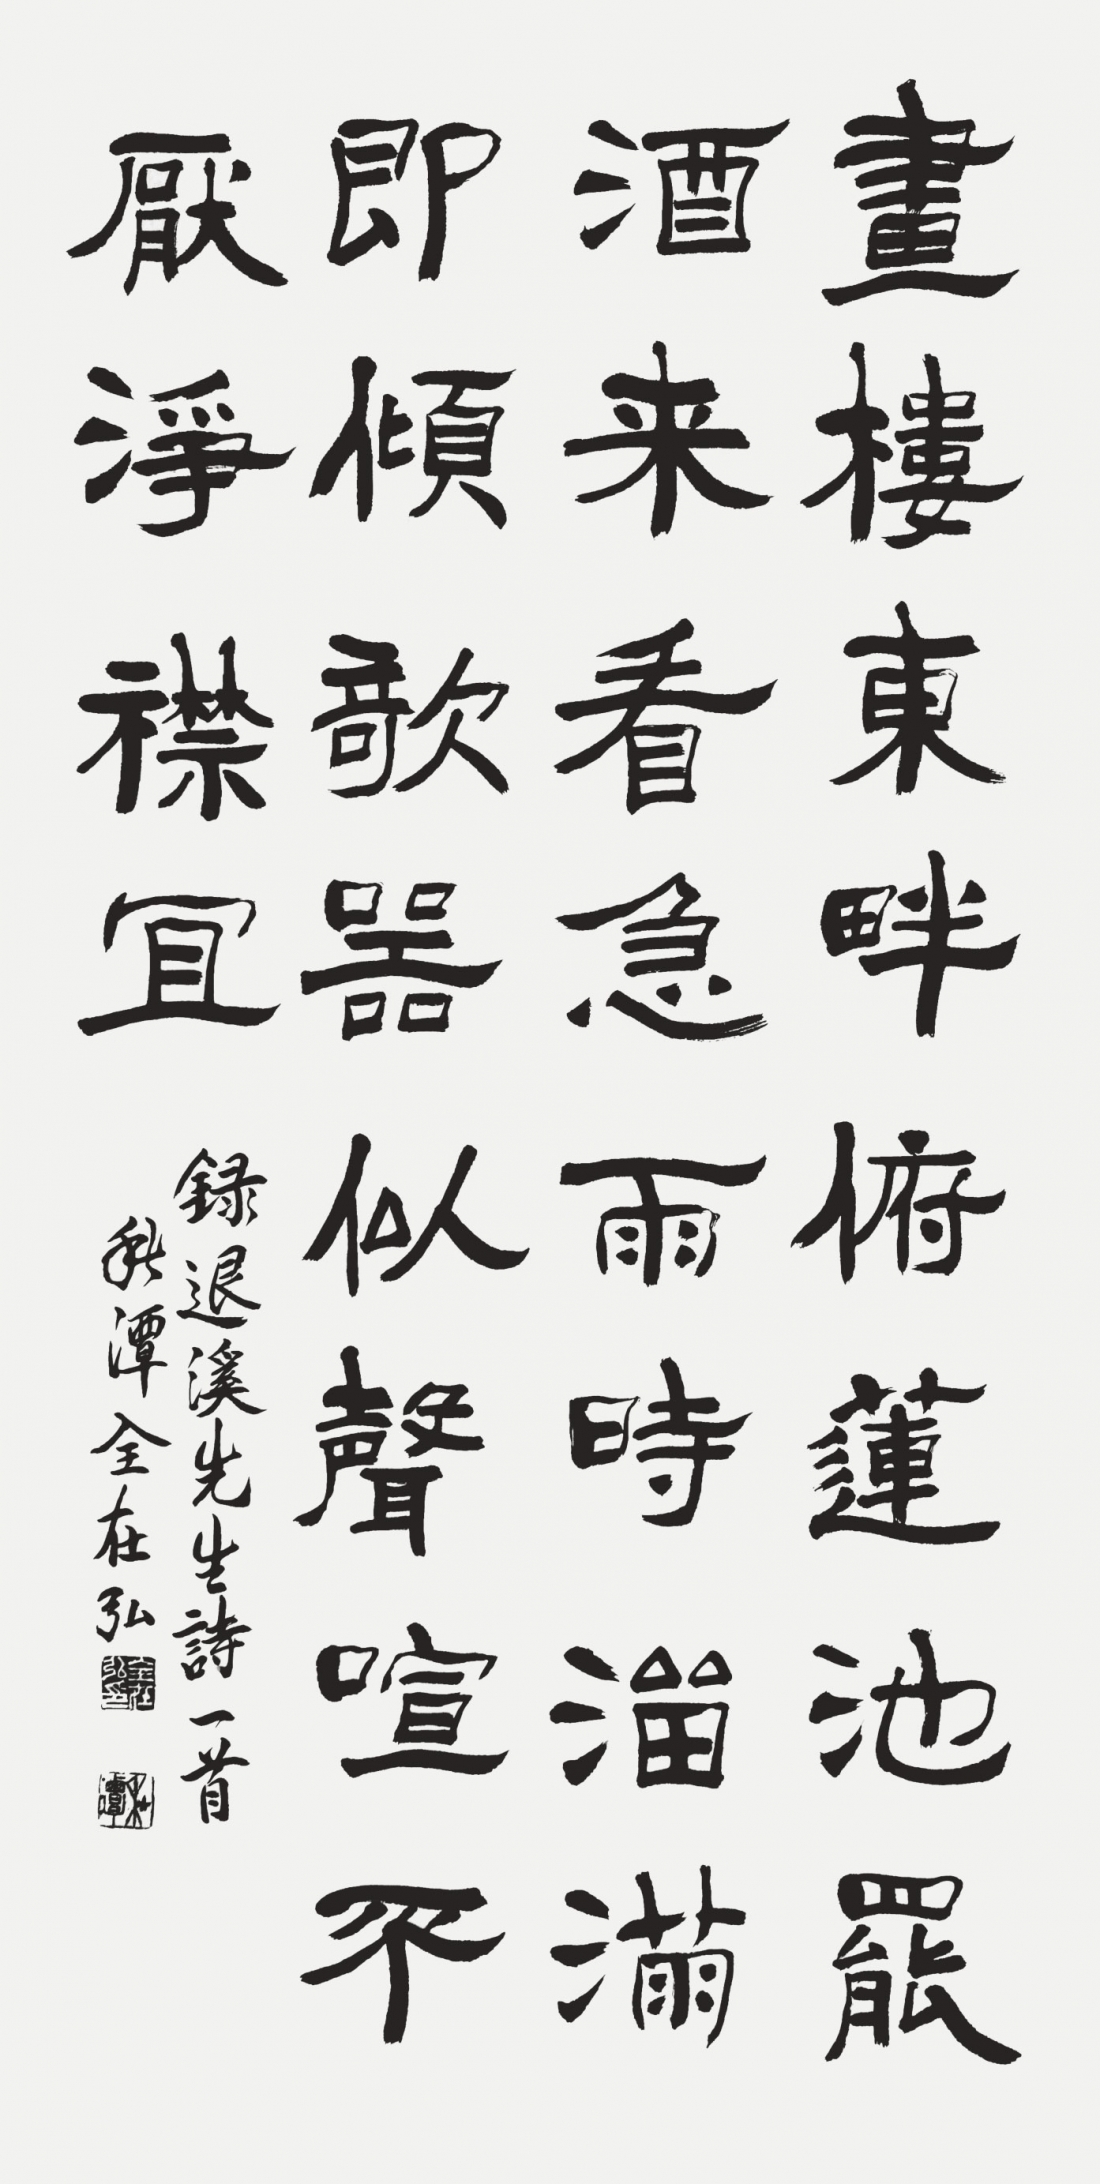 畫樓東畔俯蓮池罷
酒来看急雨時溜滿
即傾欹器似聲喧不
厭淨襟宜
録退溪先生詩一首
秋潭全在弘